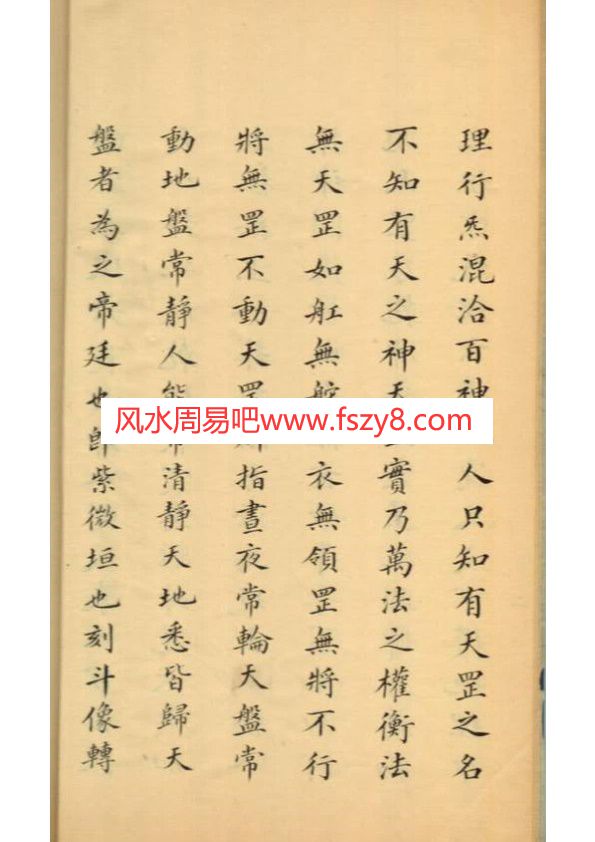 理行炁混洽百神人只知有天罡之名
不知有天之神天實乃萬法之權衡法
無天罡如舡無舵衣無領罡無將不行
將無罡不動天罡指晝夜常輪天盤常
動地盤常靜人能常清靜天地悉皆歸天
盤者為之帝廷也即紫微垣也刻斗像轉
风水周易吧www.fszy8.com